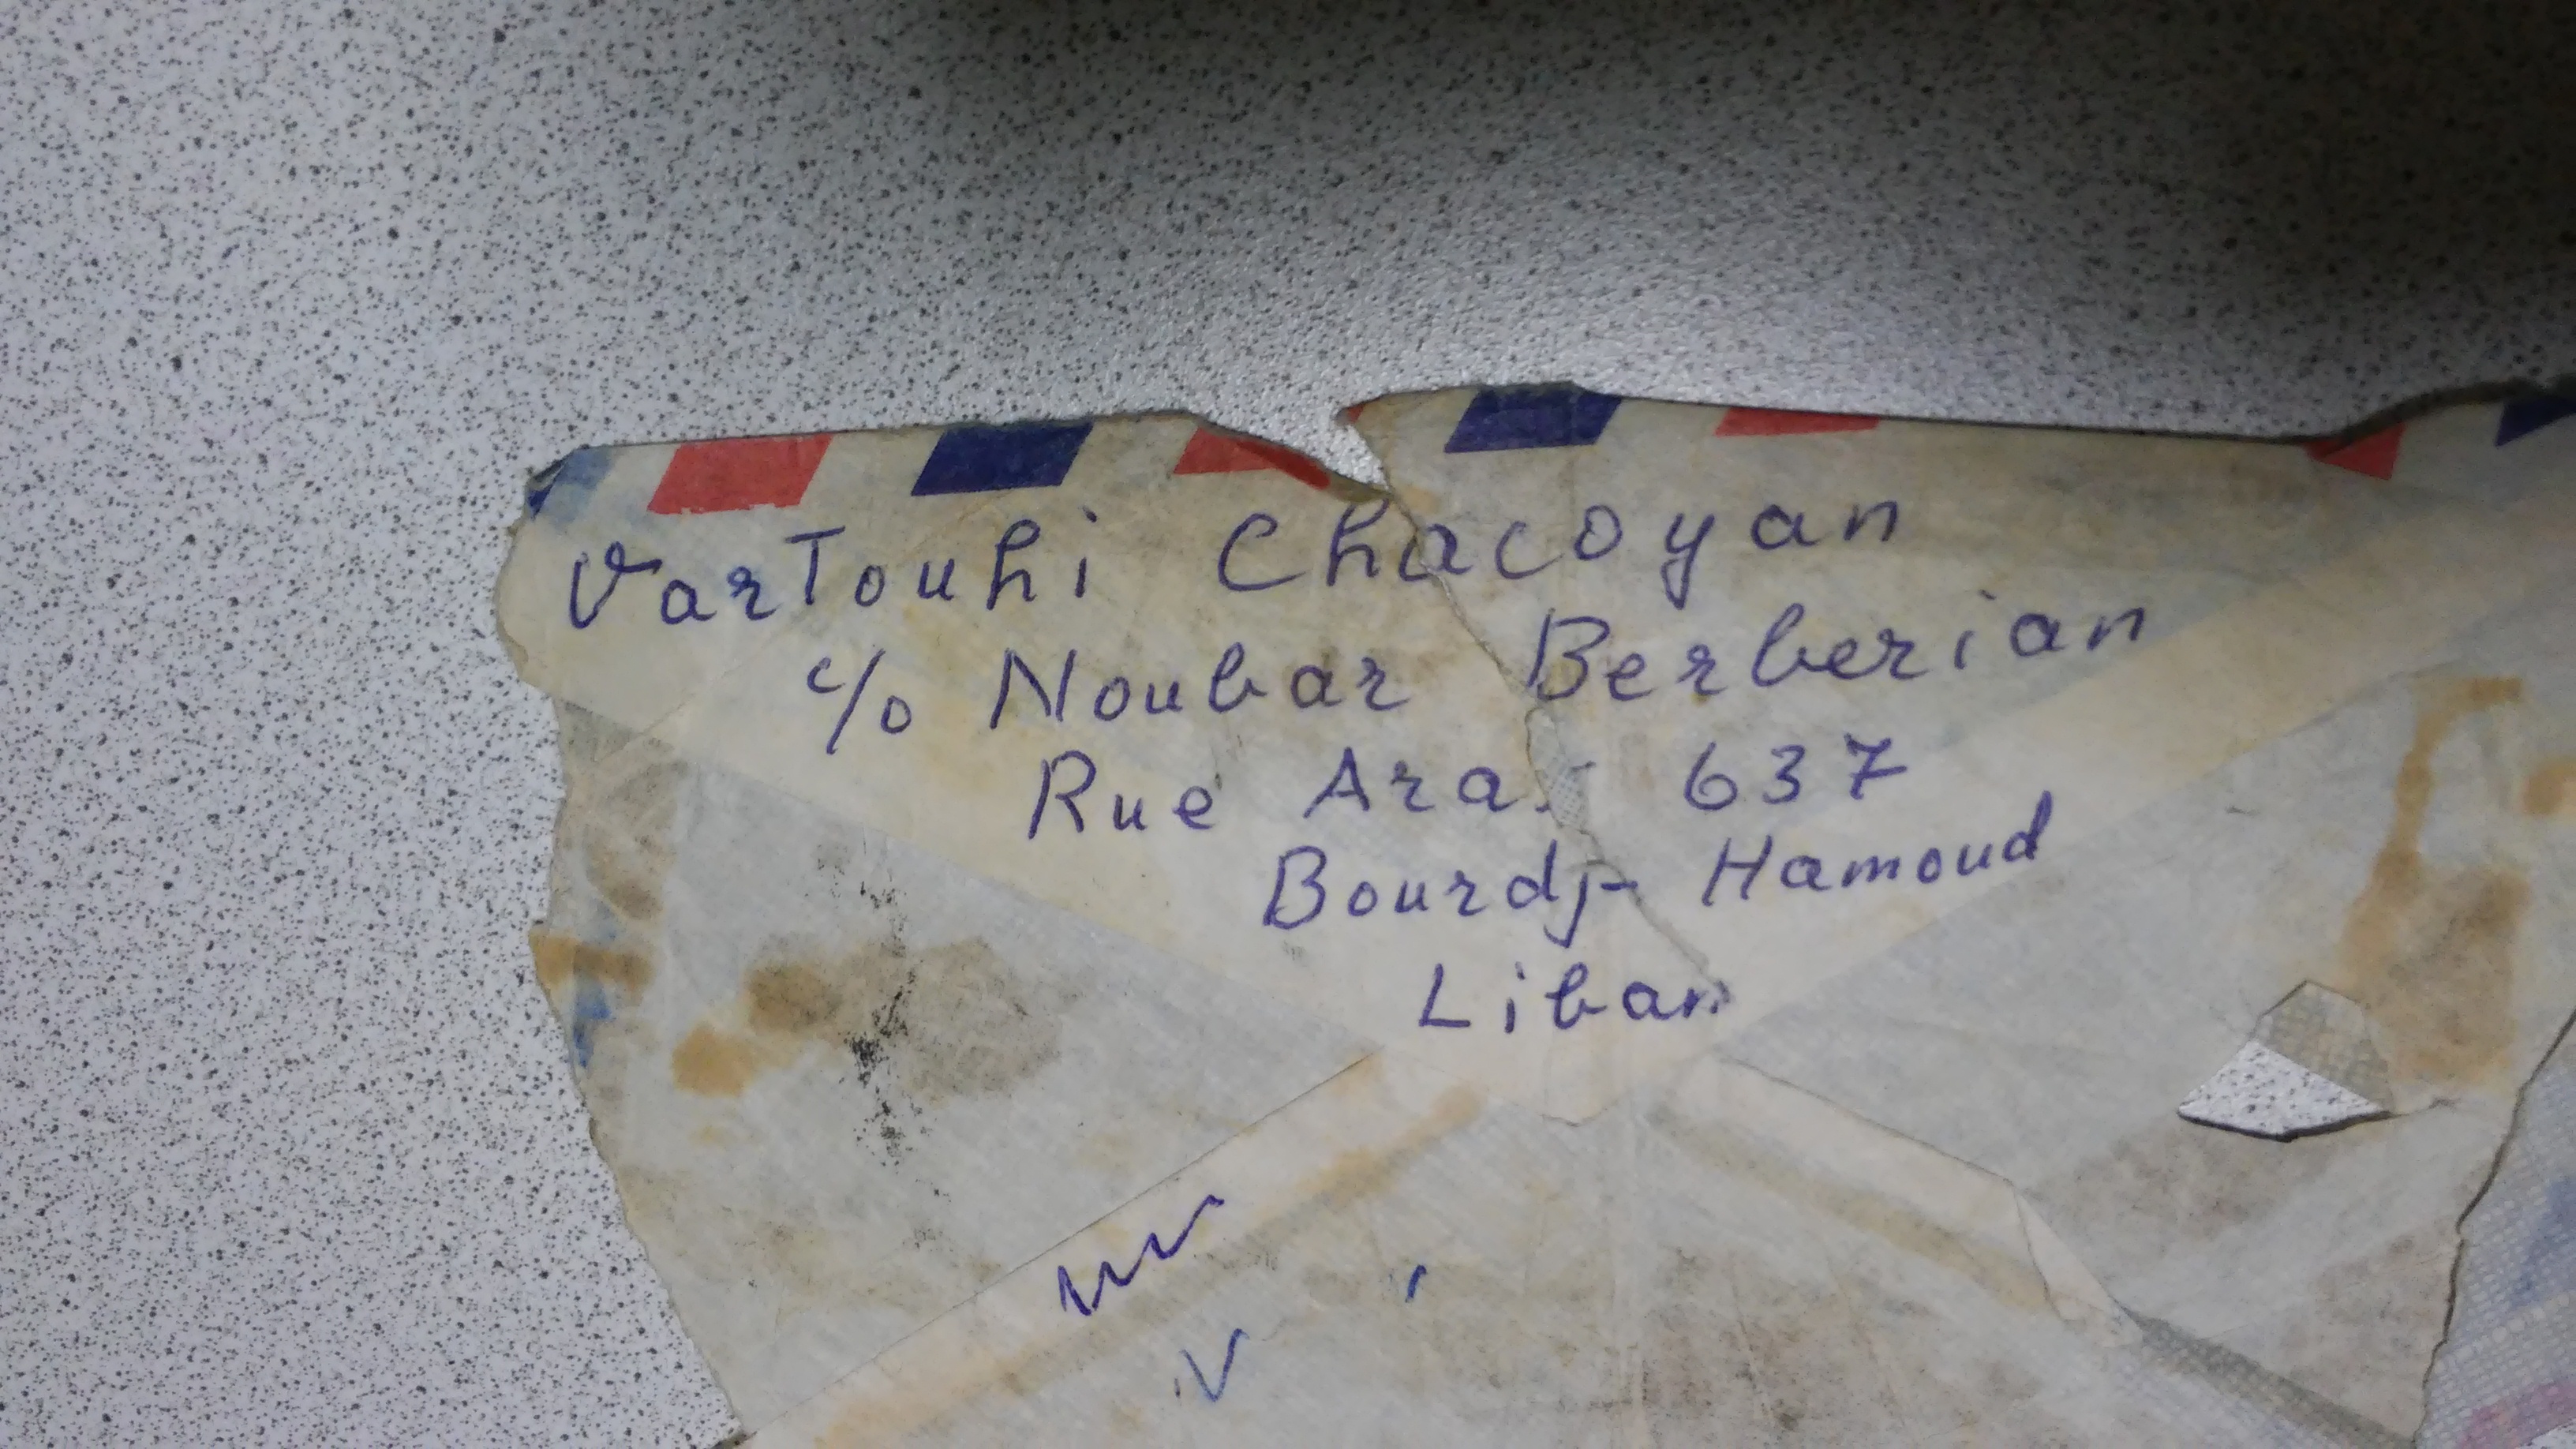 Vartouhi Chacoyan
c/o Noubar Berberian
Rue 637
Bourdj-Hamoud
Liban